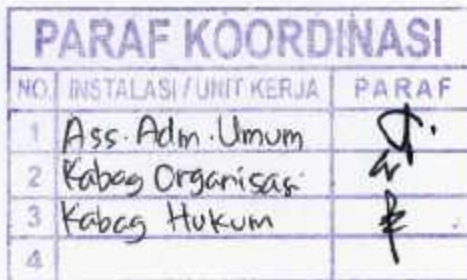 PARAF KOORDINASI
NO. INSTALASI / UNIT KERJA PARAF
1 Ass. Adm. Umum
2 Kabag Organisasi
3 Kabag Hukum
4